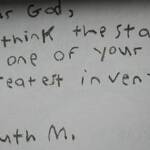 God,
think the sta
one of your
reatest inven
uth M.